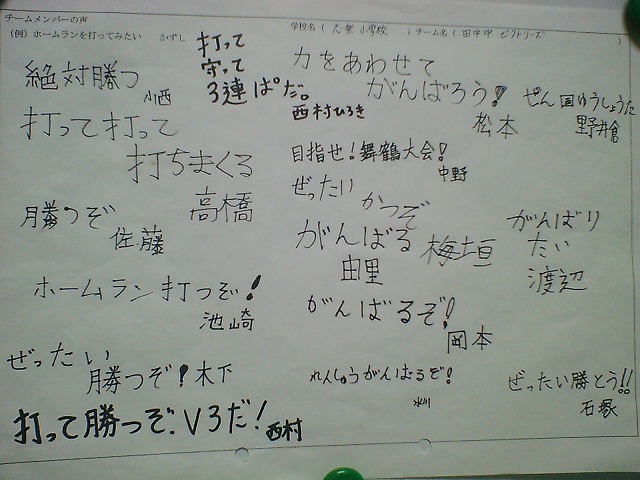 チームメンバーの声
学校名( 志楽 小学校 )チーム名( 田中中 ビクトリーズ )
(例)ホームランを打ってみたい かずし
絶対勝つ
小西
打って
守って
3連ぱだ。
西村ひろき
力をあわせて
がんばろう!
松本
ぜん国ゆうしょうだ
野井倉
打って打って
打ちまくる
高橋
目指せ!舞鶴大会!
中野
勝つぞ
佐藤
ぜったい
かつぞ
がんばる
由里
梅垣
がんばり
たい
渡辺
ホームラン打つぞ!
池崎
がんばるぞ!
岡本
ぜったい
勝つぞ!木下
れんしゅうがんばるぞ!
ぜったい勝とう!!
石塚
打って勝つぞ.V3だ!
西村